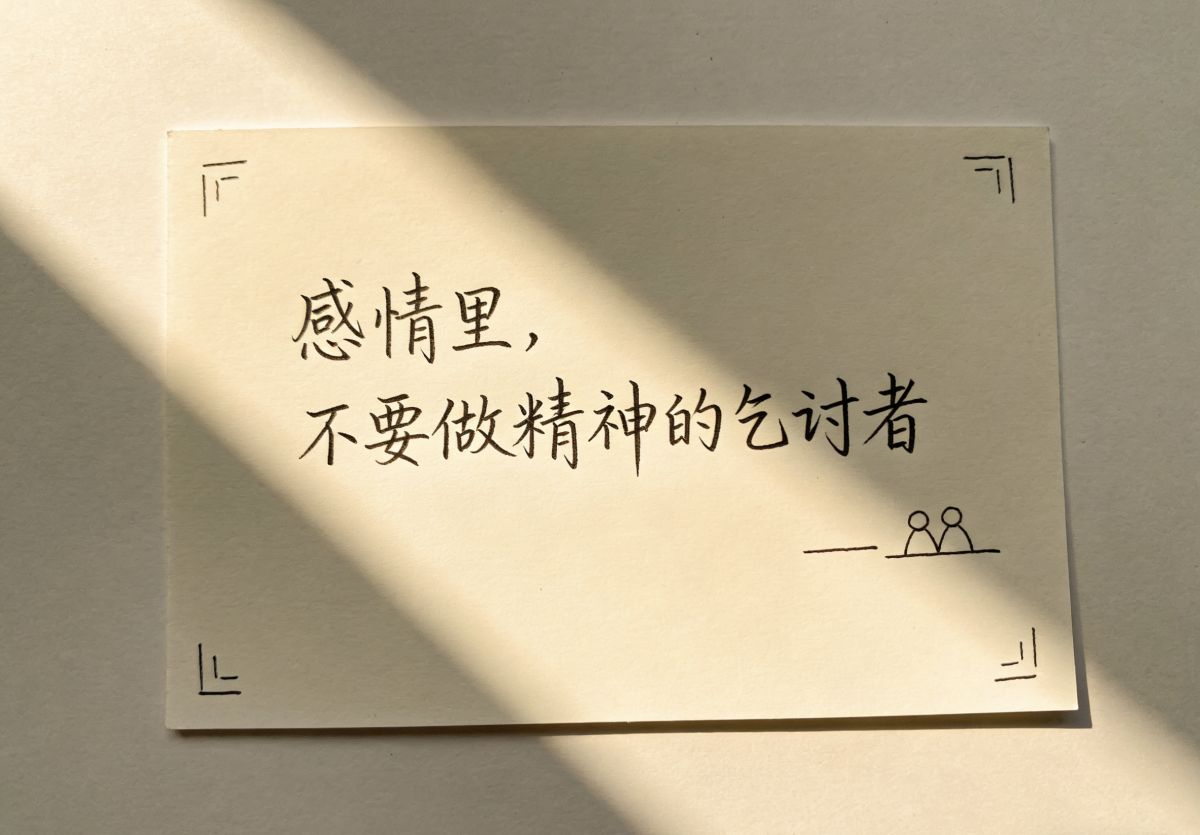 感情里,
不要做精神的乞讨者